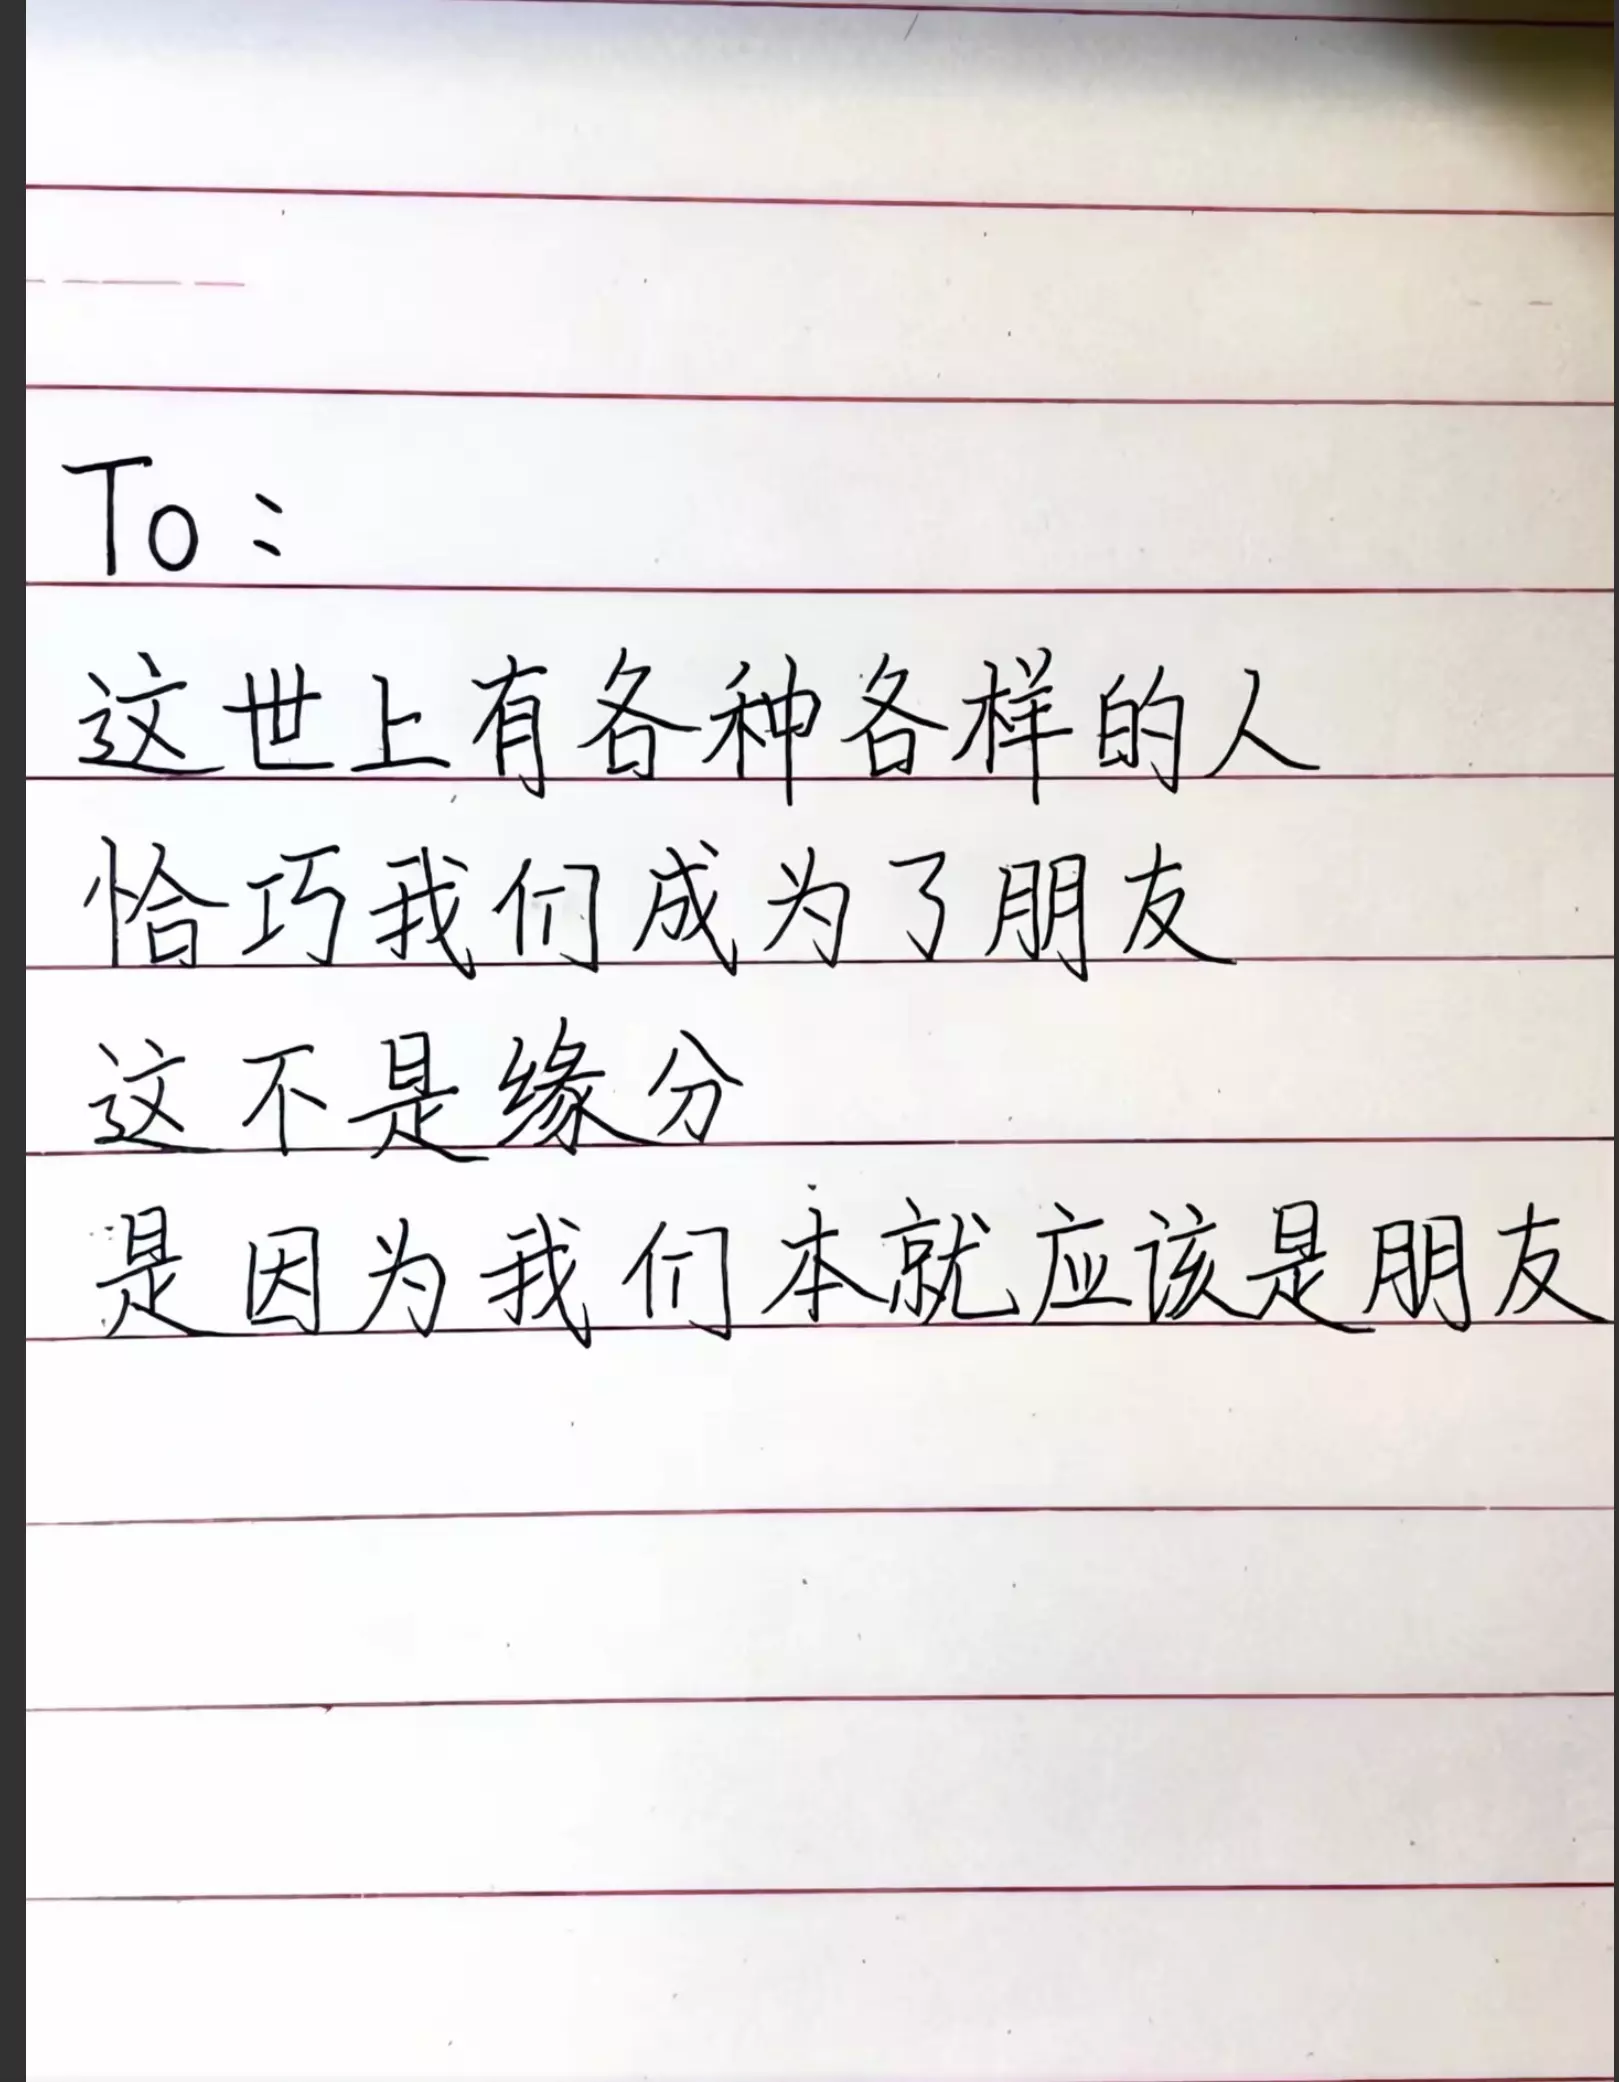 To：
这世上有各种各样的人
恰巧我们成为了朋友
这不是缘分
是因为我们本就应该是朋友